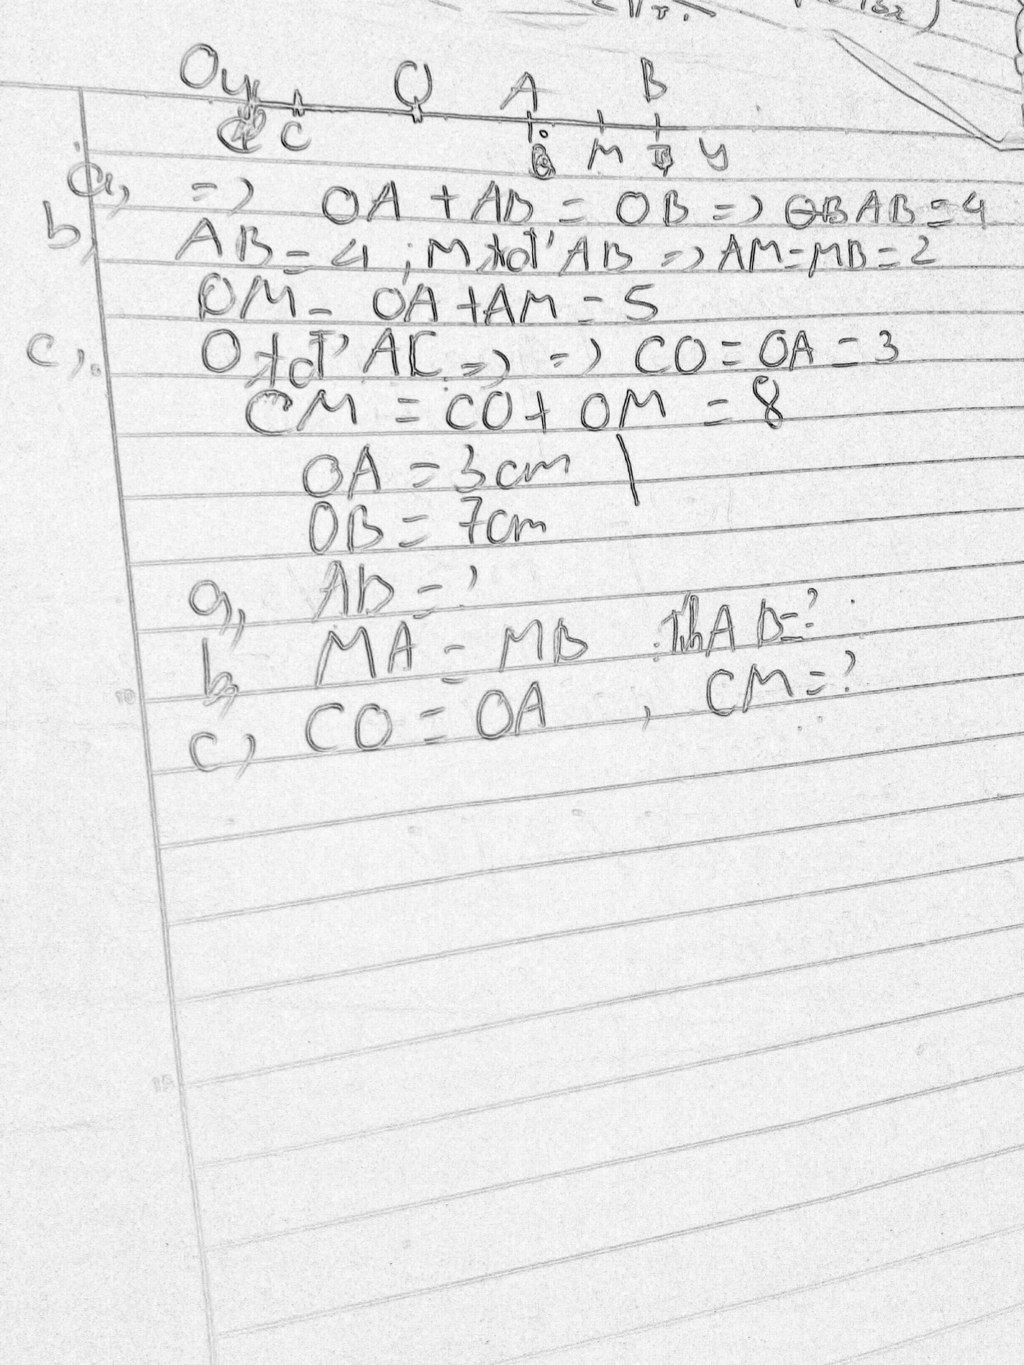 Oy Q A B
C M y
a, => OA + AB = OB => AB = 4
b, AB = 4 ; M tđ' AB => AM = MB = 2
OM = OA + AM = 5
c, O tđ' AC => => CO = OA = 3
CM = CO + OM = 8
OA = 3cm
OB = 7cm
a, AB = ?
b, MA = MB AB = ?
c, CO = OA , CM = ?